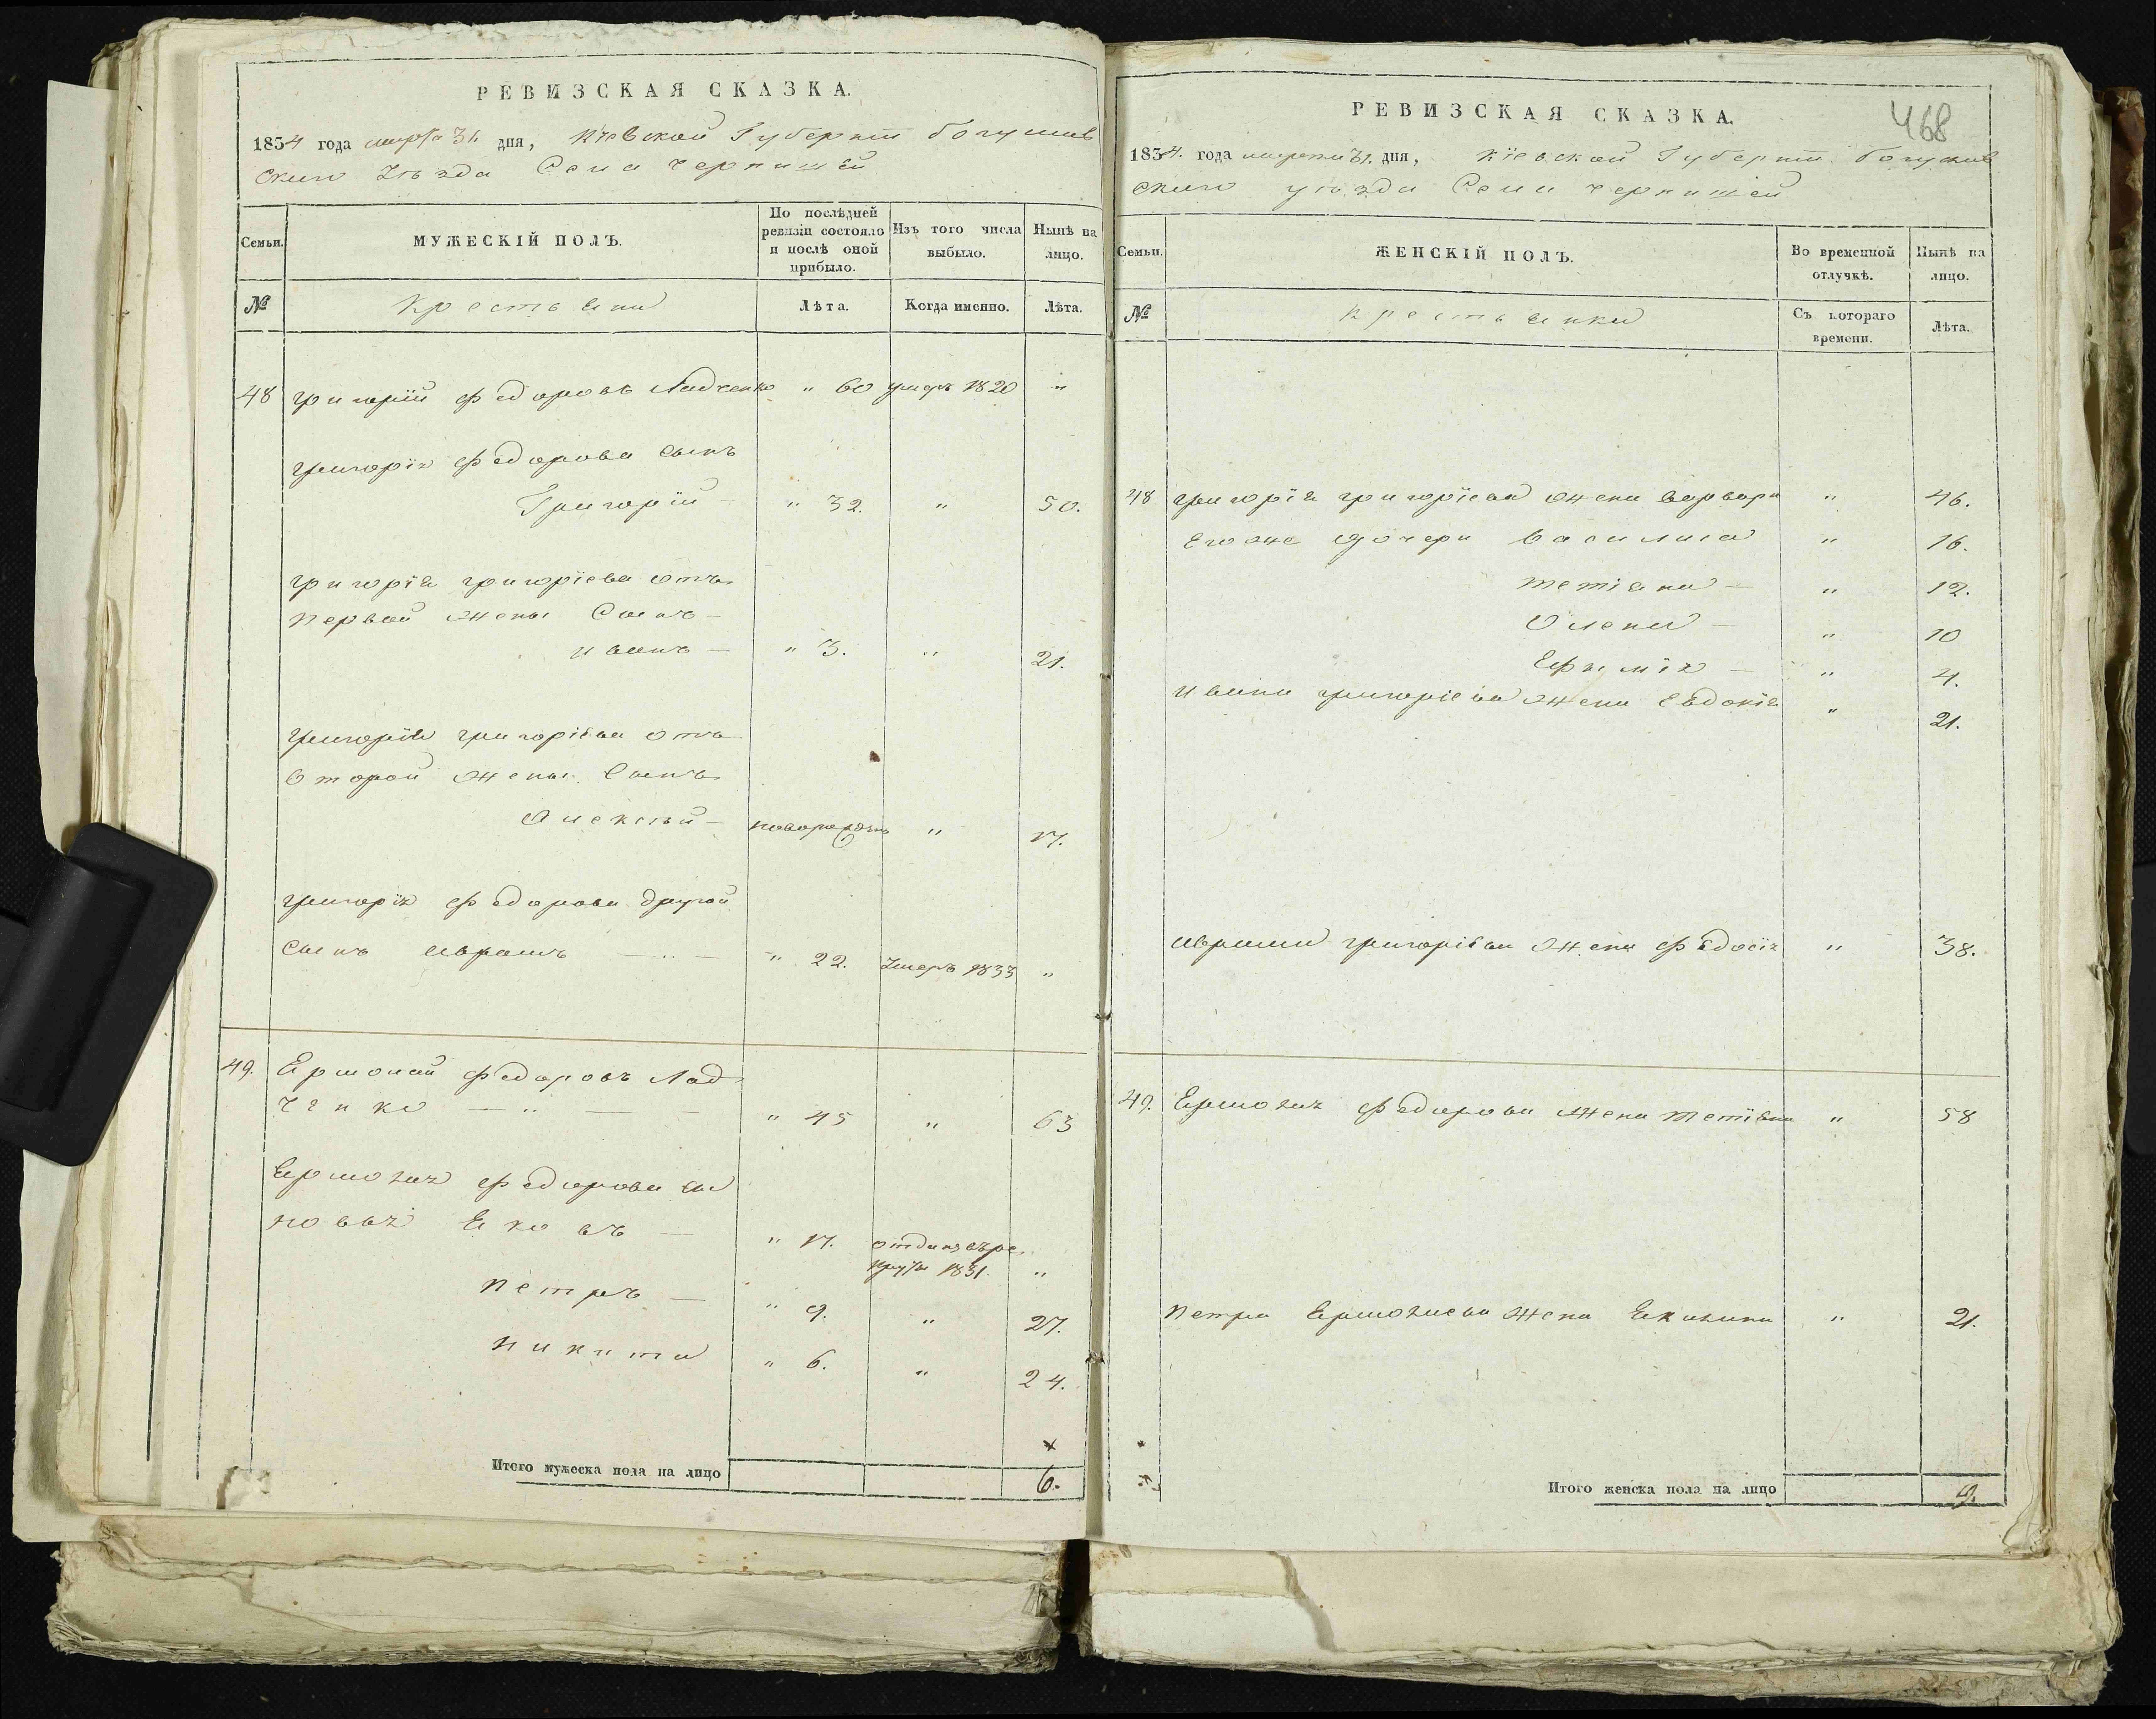 РЕВИЗСКАЯ СКАЗКА.
1834 года марта 31. дня, Кіевской Губерніи Богуслав
скаго Уѣзда Села Чернишей
Семьи.
МУЖЕСКІЙ ПОЛЪ.
По послѣдней ревизіи состояло и послѣ оной прибыло.
Изъ того числа выбыло.
Нынѣ на лицо.
№
Крестьяни
Лѣта.
Когда именно.
Лѣта.
48 Григорій Федоровъ Ладченко " 60 умеръ 1820 "
Григорія Федорова сынъ
Григорій — " 32. " 50.
Григорія Григоріева отъ
первой жены сынъ —
Иванъ — " 3. " 21.
Григорія Григоріева отъ
второй жены сынъ
Алексѣй — новорожден " 17.
Григорія Федорова другой
сынъ Аврамъ — " — " 22. умеръ 1833 "
49. Ермолай Федоровъ Лад
ченко — " — — " 45 " 63
Ермолая Федорова сы
новья Яковъ — " 17. отданъ въ ре
круты 1831. "
Петръ — " 9. " 27.
Никита " 6. " 24.
Итого мужеска пола на лицо 6.
468
РЕВИЗСКАЯ СКАЗКА.
1834. года марта 31. дня, Кіевской Губерніи Богуслав
скаго уѣзда Села Чернишей
Семьи.
ЖЕНСКІЙ ПОЛЪ.
Во временной отлучкѣ.
Нынѣ на лицо.
№
Крестьянки
Съ котораго времени.
Лѣта.
48 Григорія Григоріева жена Варвара " 46.
Его же дочери Василиса " 16.
Тетіяна — " 12.
Олена — " 10
Ефимія — " 4.
Ивана Григоріева жена Евдокія " 21.
Аврама Григоріева жена Федосія " 38.
49. Ермолая Федорова жена Тетіяна " 58
Петра Ермолаева жена Якилина " 21.
Итого женска пола на лицо 9.